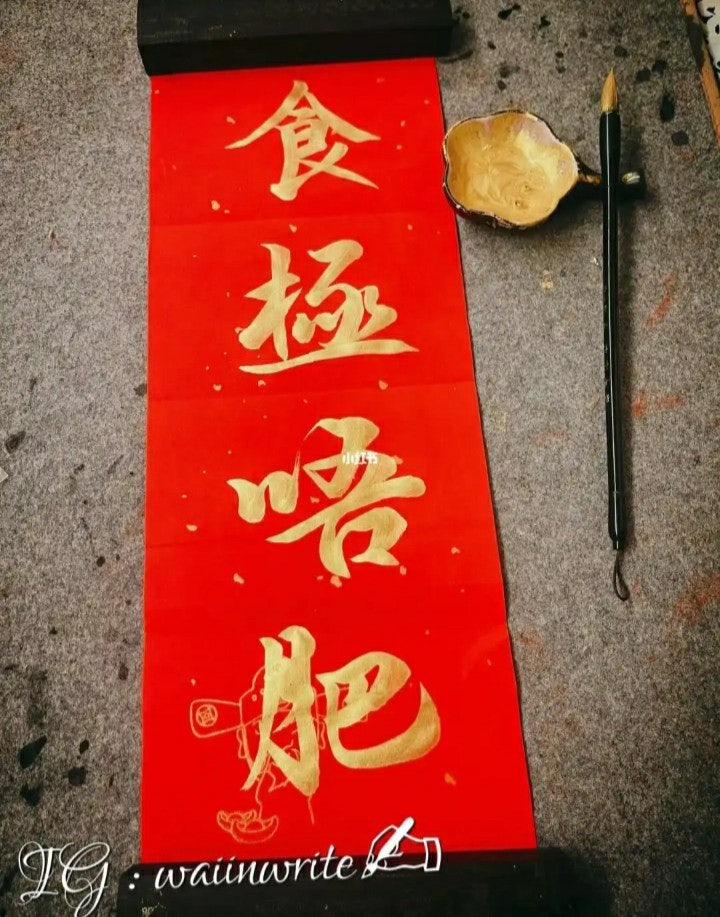 食極唔肥
小红书
IG : waiinwrite